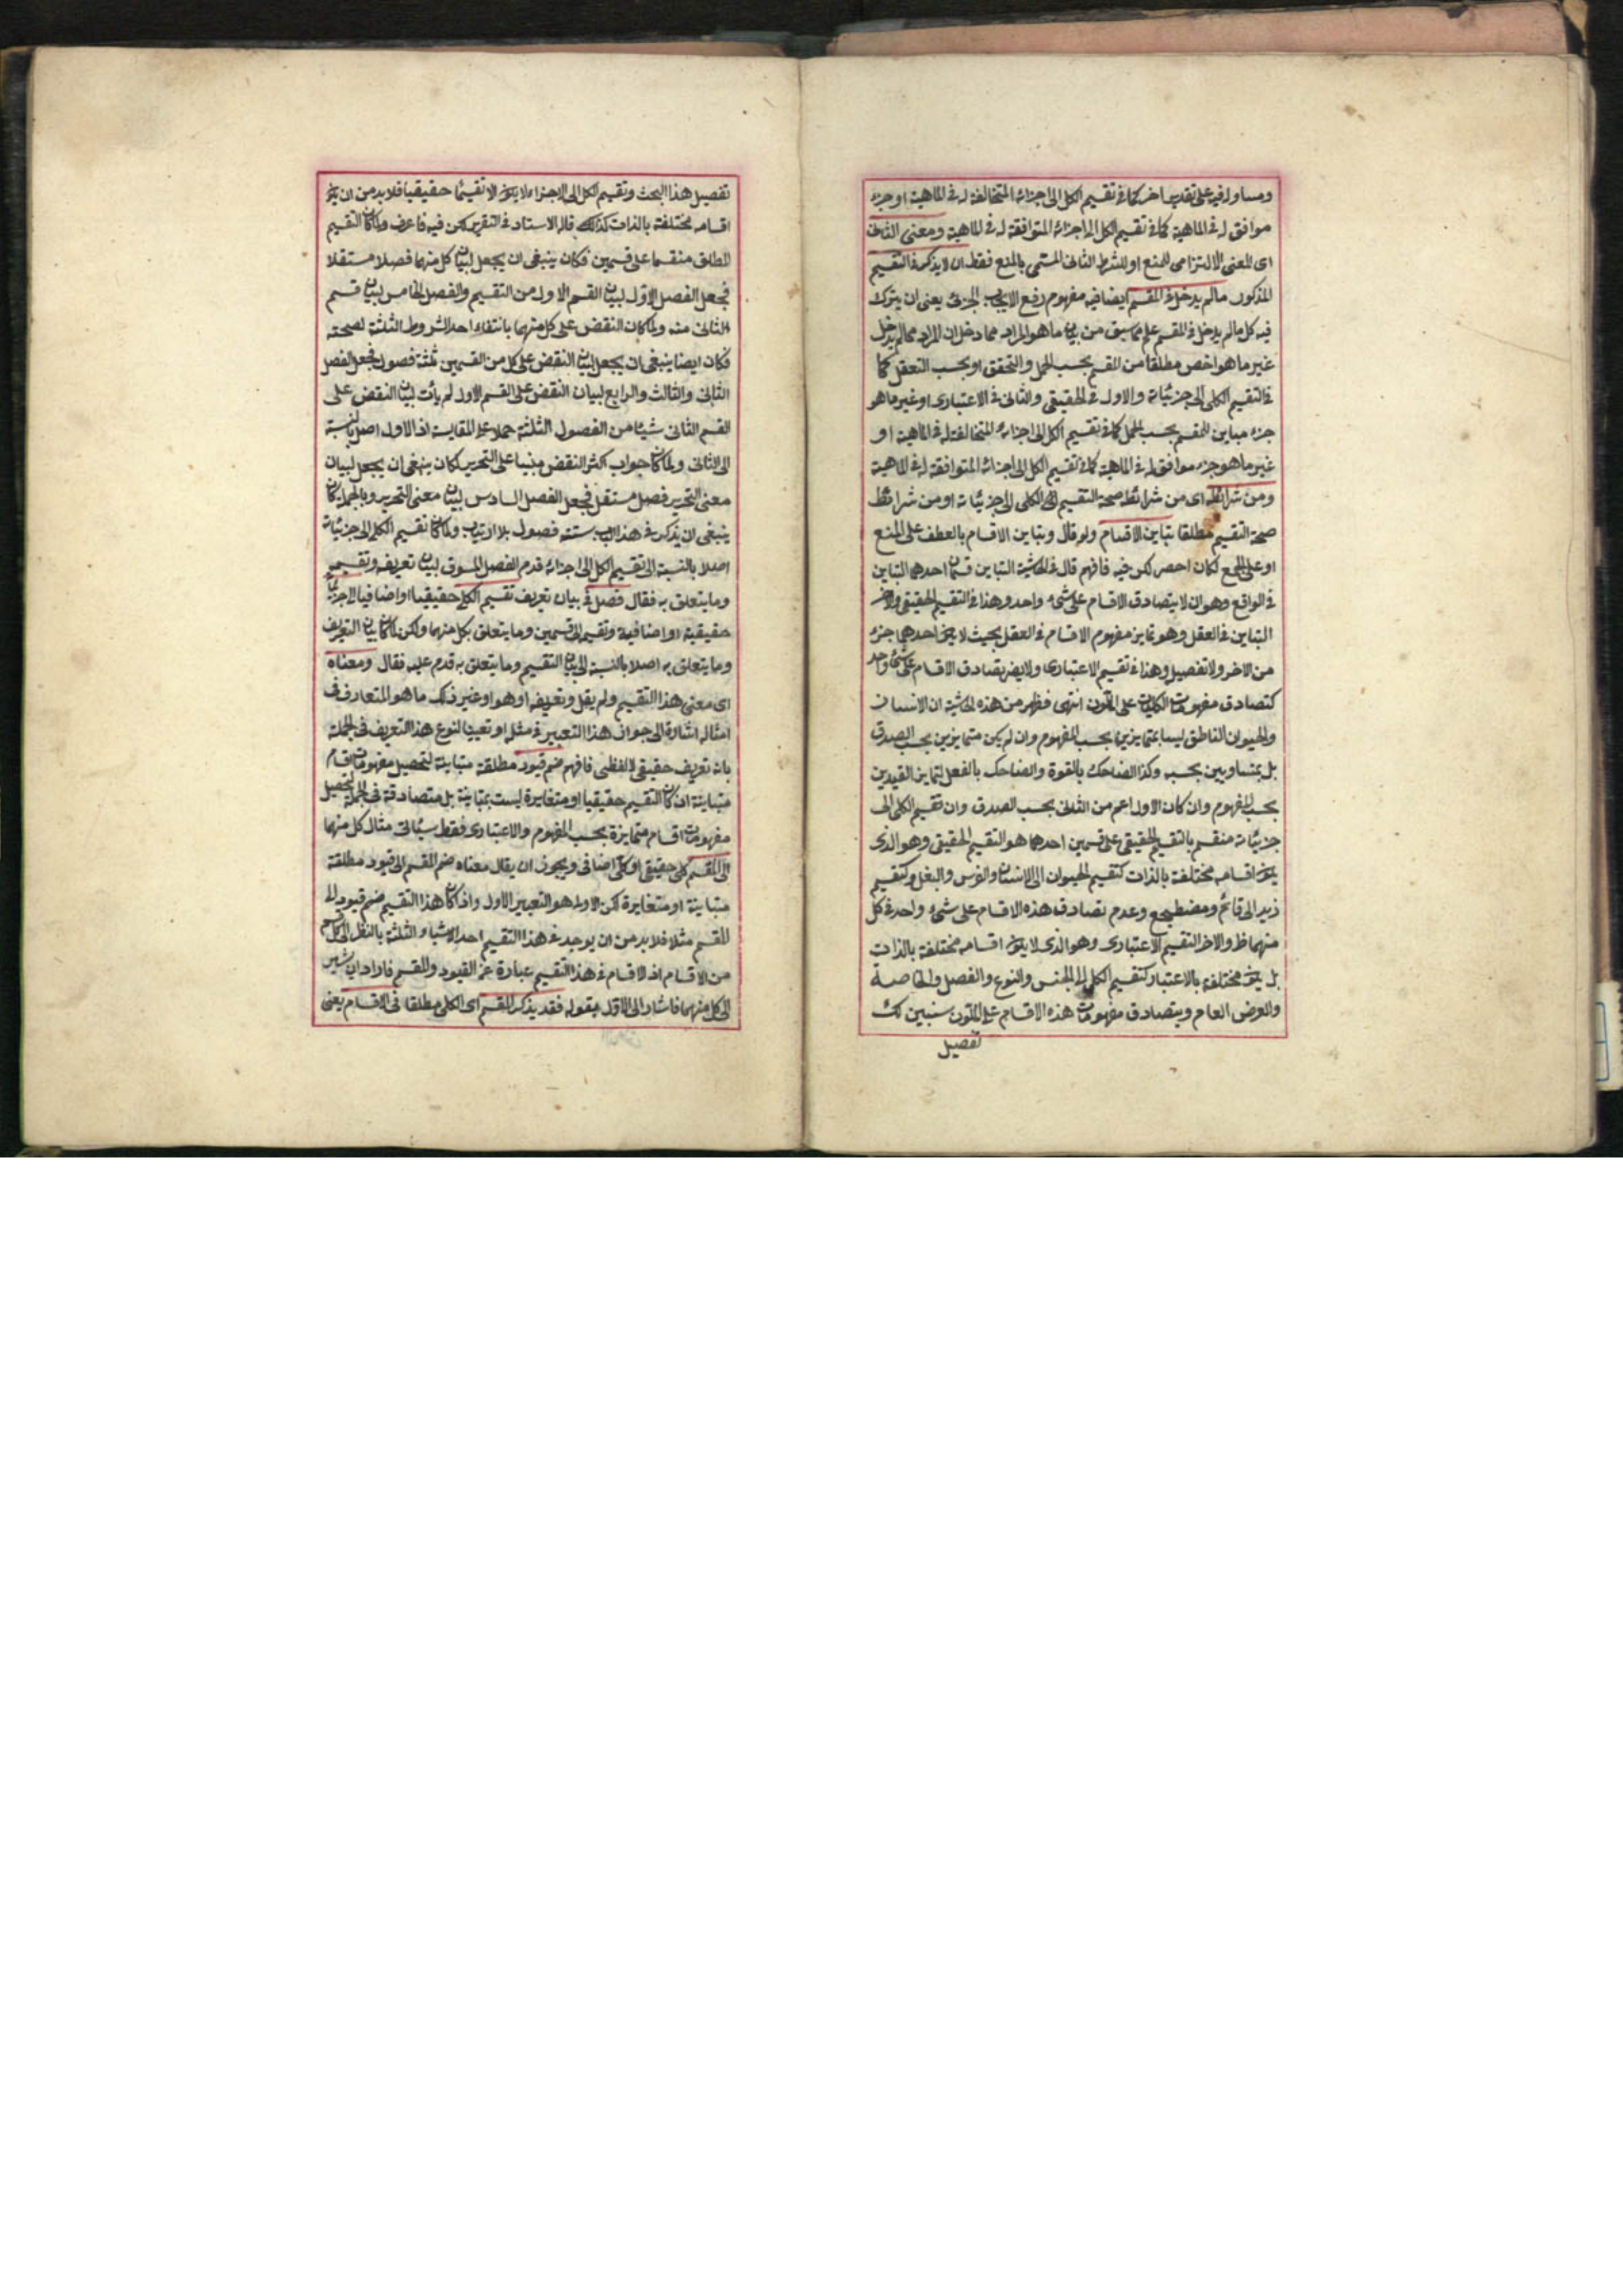 ومساو له فيه على تقدير اخر كما في تقسيم الكل الى اجزائه المتخالفة له في الماهية او جزء
موافق له في الماهية كما في تقسيم الكل الى اجزائه المتوافقة له في الماهية ومعنى الثاني
اى المعنى الالتزامى للمنع او للشرط الثانى المسمى بالمنع فقط ان لا يذكر في التقسيم
المذكور مالم يدخل في المقسم ايضا فيه مفهوم رفع الايجاب الجزئى يعنى ان يترك
فيه كل مالم يدخل في المقسم علم مما سبق من بيان ما هو المراد مما دخل ان المراد ممالم يدخل
غير ما هو اخص مطلقا من المقسم بحسب الحمل والتحقق او بحسب التعقل كما
في التقسيم الكلى الى جزئياته والاول في الحقيقى والثانى في الاعتبارى او غير ما هو
جزء مباين للمقسم بحسب الحمل كما في تقسيم الكل الى اجزائه المتخالفة له في الماهية او
غير ما هو جزء موافق له في الماهية كما في تقسيم الكل الى اجزائه المتوافقة له في الماهية
ومن شرائطه اى من شرائط صحة التقسيم اى الكلى الى جزئياته او من شرائط
صحة التقسيم مطلقا تباين الاقسام ولو قال وتباين الاقسام بالعطف على المنع
او على الجمع لكان احصر لكن فيه فافهم قال في الحاشية التباين قسمان احدهما التباين
في الواقع وهو ان لا يتصادق الاقسام على شىء واحد وهذا في التقسيم الحقيقى والاخر
التباين في العقل وهو تمايز مفهوم الاقسام في العقل بحيث لا يكون احدهما جزء
من الاخر ولا تفصيل وهذا في تقسيم الاعتبارى ولا يضر تصادق الاقسام على شىء واحد
كتصادق مفهومات الكليات على الملون انتهى فظهر من هذه الحاشية ان الانسان
والحيوان الناطق ليسا بمتمايزين بحسب المفهوم وان لم يكن متمايزين بحسب الصدق
بل بمتساويين بحسبه وكذا الضاحك بالقوة والضاحك بالفعل لتمايز القيدين
بحسب المفهوم وان كان الاول اعم من الثانى بحسب الصدق وان تقسيم الكلى الى
جزئياته منقسم بالتقسيم الحقيقى على قسمين احدهما هو التقسيم الحقيقى وهو الذى
يكون اقسامه مختلفة بالذات كتقسيم الحيوان الى الانسان والفرس والبغل وكتقسيم
زيد الى قائم ومضطجع وعدم تصادق هذه الاقسام على شىء واحد في كل
منهما ظ والاخر التقسيم الاعتبارى وهو الذى لا يكون اقسامه مختلفة بالذات
بل يكون مختلفة بالاعتبار كتقسيم الكلى الى الجنس والنوع والفصل والخاصة
والعرض العام ويتصادق مفهومات هذه الاقسام على الملون سنبين لك
تفصيل
تفصيل هذا البحث وتقسيم الكل الى الاجزاء لا يكون الا تقسيما حقيقيا فلا بد من ان يكون
اقسامه مختلفة بالذات كذلك قال الاستاد في التقرير لكن فيه فاعرف ولما كان التقسيم
المطلق منقسما على قسمين فكان ينبغى ان يجعل لبيان كل منهما فصلا مستقلا
فجعل الفصل الاول لبيان القسم الاول من التقسيم والفصل الخامس لبيان قسم
الثانى منه ولما كان النقض على كل منهما بانتفاء احد الشروط الثلثة لصحته
فكان ايضا ينبغى ان يجعل لبيان النقض على كل من القسمين ثلثة فصول فجعل الفصل
الثانى والثالث والرابع لبيان النقض على القسم الاول لم يأت لبيان النقض على
القسم الثانى شيئا من الفصول الثلثة حملا على المقايسة اذ الاول اصل بالنسبة
الى الثانى ولما كان جواب اكثر النقض مبنيا على التحرير لكان ينبغى ان يجعل لبيان
معنى التحرير فصل مستقل فجعل الفصل السادس لبيان معنى التحرير وبالجملة كان
ينبغى ان يذكر في هذا الباب ستة فصول بلا ارتياب ولما كان تقسيم الكلى الى جزئياته
اصلا بالنسبة الى تقسيم الكل الى اجزائه قدم الفصل المسوق لبيان تعريفه وتقسيمه
وما يتعلق به فقال فصل في بيان تعريف تقسيم الكلى حقيقيا او اضافيا الى جزئياته
حقيقية او اضافية وتقسيمه الى قسمين وما يتعلق بكل منهما ولكن لما كان بيان التعريف
وما يتعلق به اصلا بالنسبة الى بيان التقسيم وما يتعلق به قدم عليه فقال ومعناه
اى معنى هذا التقسيم ولم يقل وتعريفه او هو او غير ذلك ما هو المتعارف في
امثاله اشارة الى جواز هذا التعبير في مثله او تعيينا لنوع هذا التعريف في الجملة
بانه تعريف حقيقى لا لفظى فافهم ضم قيود مطلقة متباينة لتحصيل مفهومات اقسام
متباينة ان كان التقسيم حقيقيا او متغايرة ليست بمتباينة بل متصادقة في الجملة لتحصيل
مفهومات اقسام متمايزة بحسب المفهوم والاعتبارى فقط سيأتى مثال كل منهما
الى المقسم كلى حقيقى او كلى اضافى ويجوز ان يقال معناه ضم المقسم الى قيود مطلقة
متباينة او متغايرة لكن الاولى هو التعبير الاول واذا كان هذا التقسيم ضم قيود الى
المقسم مثلا فلا بد من ان يوجد في هذا التقسيم احد الاشياء الثلثة بالنظر الى كل قسم
من الاقسام اذ الاقسام في هذا التقسيم عبارة عن القيود والمقسم فاراد ان يشير
الى كل منهما فاشار الى الاول بقوله فقد يذكر المقسم اى الكلى مطلقا في الاقسام يعنى